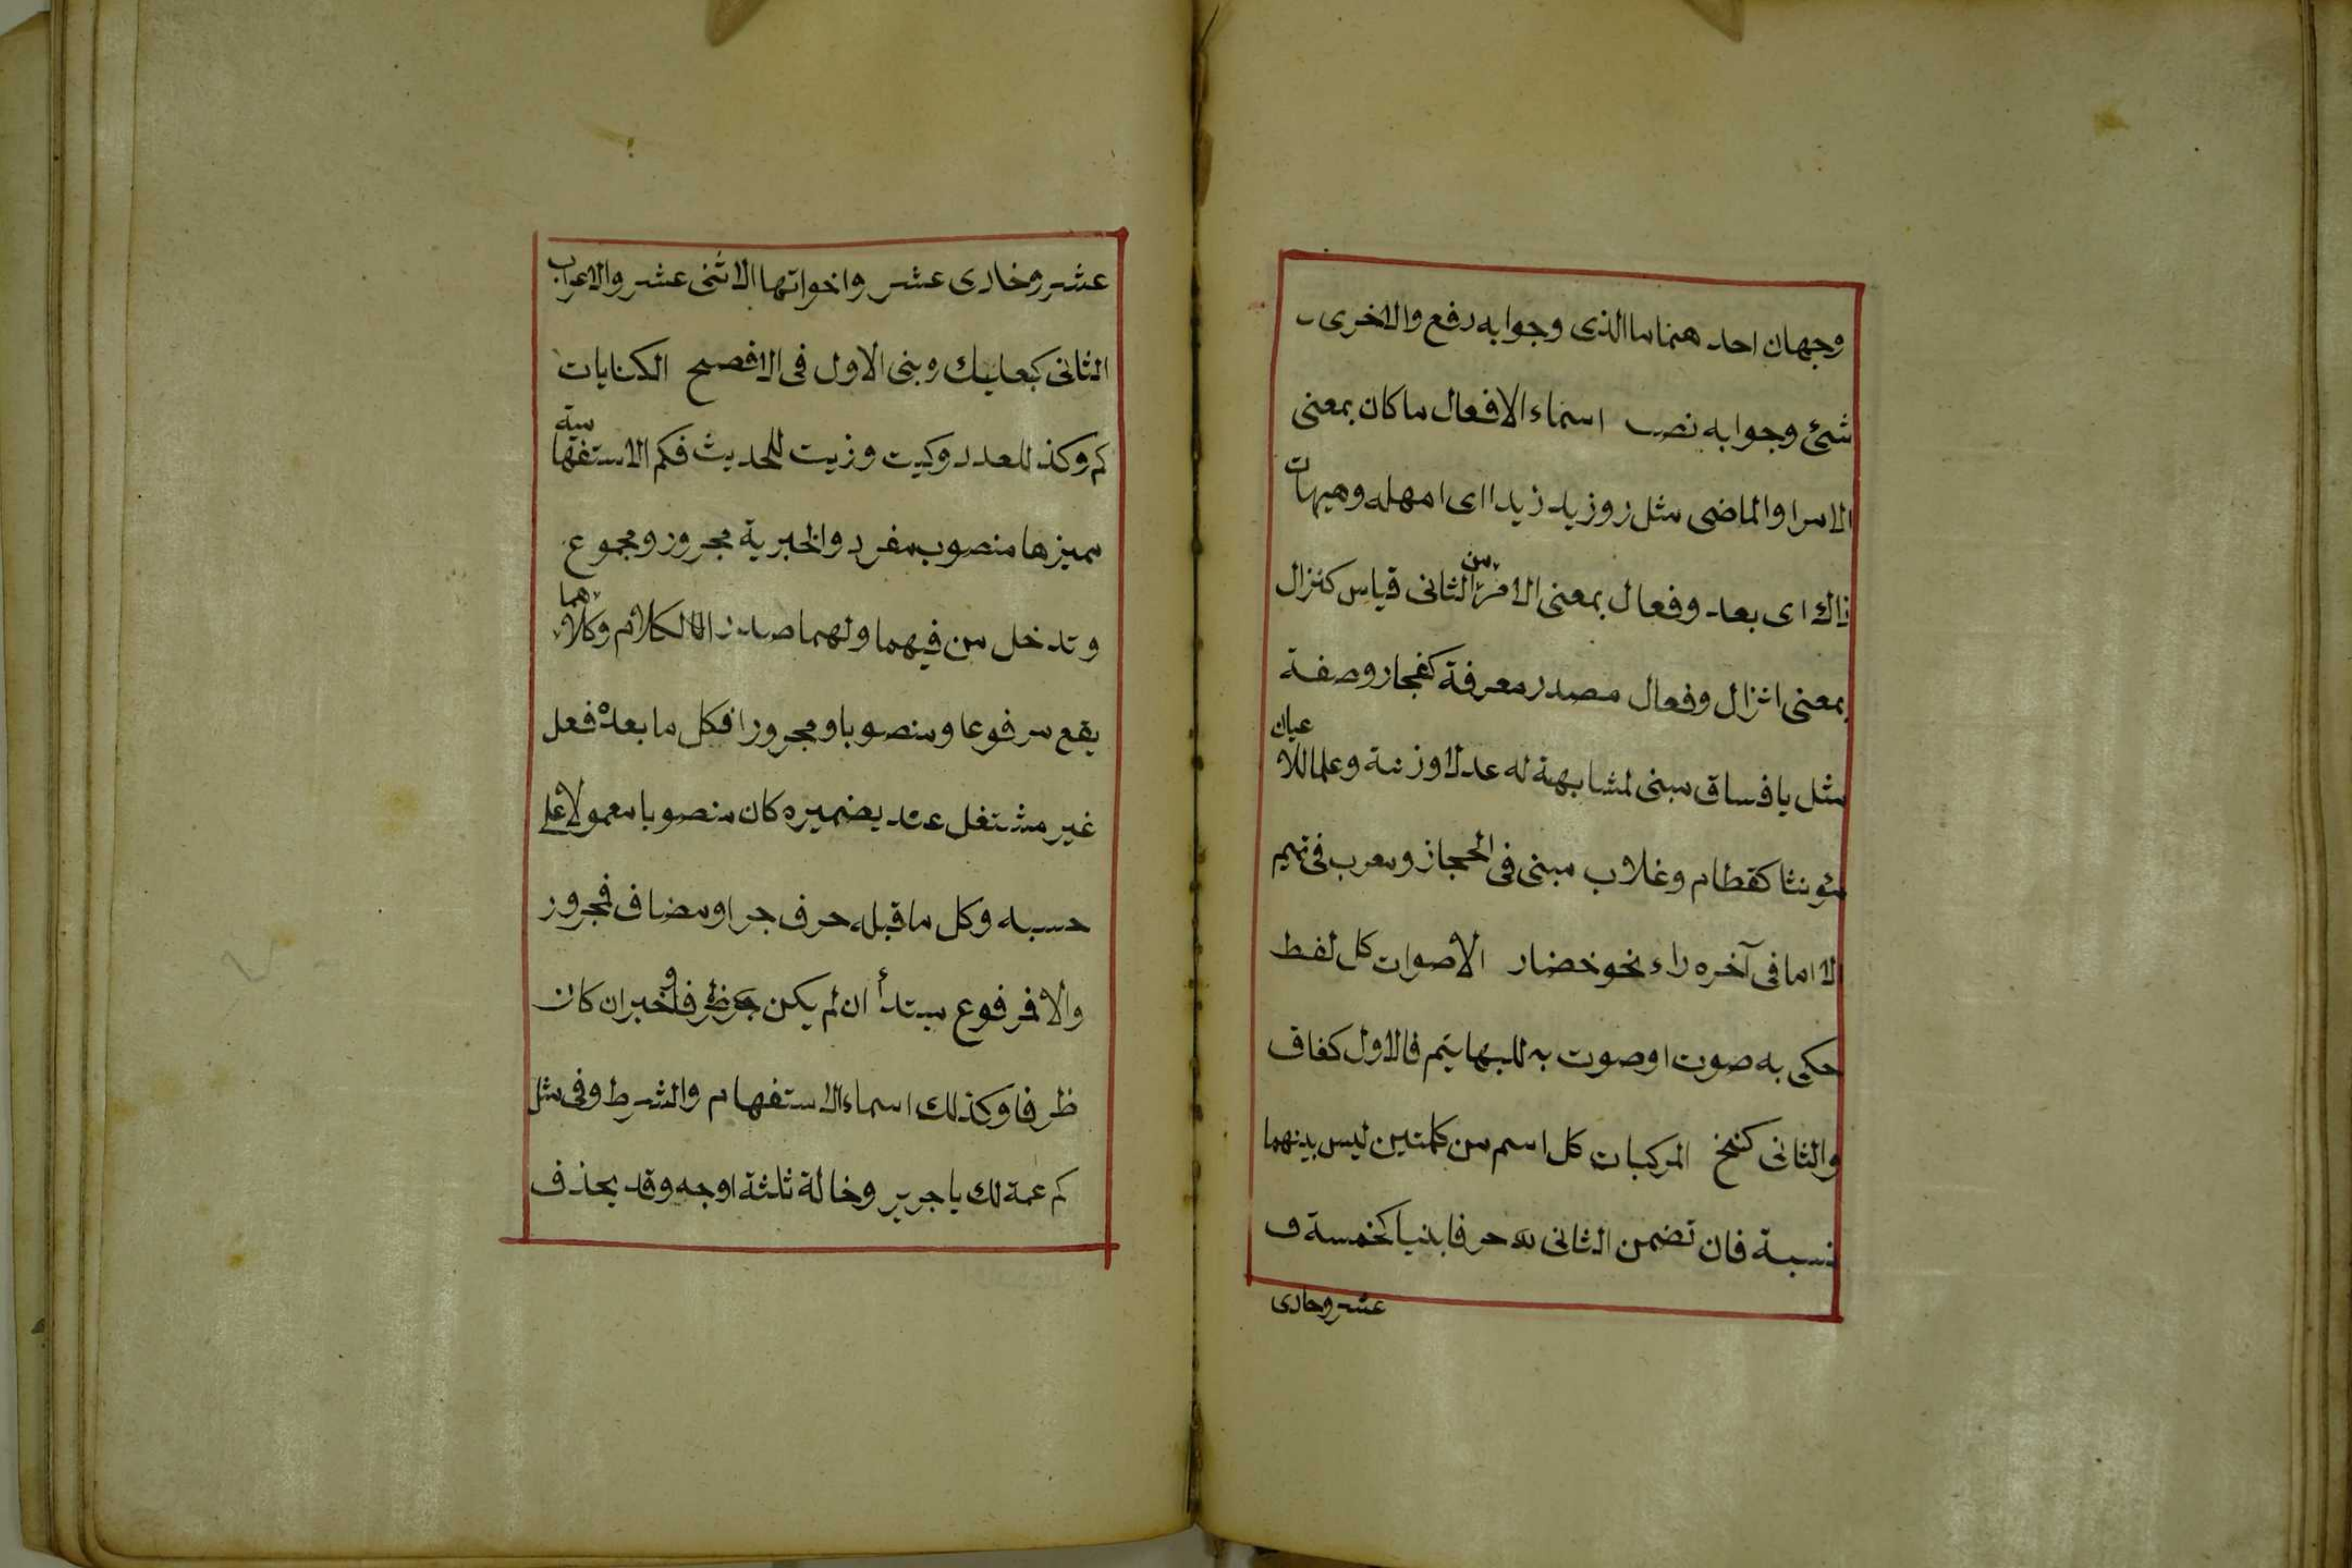 وجهان احدهما ما الذى وجوابه رفع والاخرى
شئ وجوابه نصب اسماء الافعال ما كان بمعنى
الامر او الماضى مثل رويد زيدا اى امهله وهيهات
ذاك اى بعد وفعال بمعنى الامر من الثانى قياس كنزال
بمعنى انزال وفعال مصدر معرفة كفجار وصفة
مثل يا فساق مبنى لمشابهة له عدلا وزنة وعلما للاعيان
مؤنثا كقطام وغلاب مبنى فى الحجاز ومعرب فى تميم
الا ما فى آخره راء نحو خضار الاصوات كل لفظ
حكى به صوت او صوت به للبهايم فالاول كغاق
والثانى كنخ المركبات كل اسم من كلمتين ليس بينهما
نسبة فان تضمن الثانى حرفا بنيا كخمسة
عشر وحادى
عشر وحادى عشر واخواتها الا اثنى عشر والا اعرب
الثانى كبعلبك وبنى الاول فى الافصح الكنايات
كم وكذا للعدد وكيت وزيت للحديث فكم الاستفهامية
مميزها منصوب مفرد والخبرية مجرور ومجموع
وتدخل من فيهما ولهما صدر الكلام وكلاهما
يقع مرفوعا ومنصوبا ومجرورا فكل ما بعده فعل
غير مشتغل عنه بضميره كان منصوبا معمولا على
حسبه وكل ما قبله حرف جر او مضاف فمجرور
والا فمرفوع مبتدأ ان لم يكن ظرفا وخبر ان كان
ظرفا وكذلك اسماء الاستفهام والشرط وفى مثل
كم عمة لك يا جرير وخالة ثلثة اوجه وقد يحذف